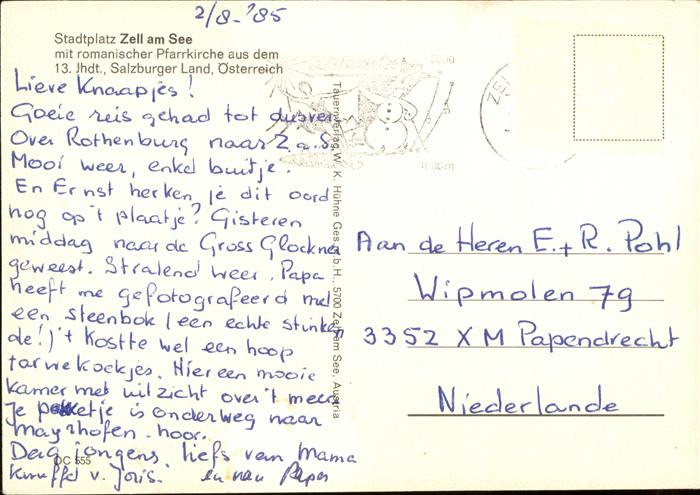 2/8-'85
Stadtplatz Zell am See
mit romanischer Pfarrkirche aus dem
13. Jhdt., Salzburger Land, Österreich
Lieve Knaapjes!
Goeie reis gehad tot dusver.
Over Rothenburg naar Z.a.S.
Mooi weer, enkel buitje.
En Ernst herken je dit oord
nog op 't plaatje? Gisteren
middag naar de Gross Glockner
geweest. Stralend weer. Papa
heeft me gefotografeerd met
een steenbok (een echte stinken
de!) 't Kostte wel een hoop
tarwekoekjes. Hier een mooie
kamer met uitzicht over 't meer
Je pakketje is onderweg naar
Mayrhofen. hoor.
Dag jongens, liefs van Mama
Knuffel v. Joris. en van Papa
DC 555
Tauernverlag W. K. Hühne Ges. m. b. H., 5700 Zell am See, Austria
ZEL
Aan de Heren E. + R. Pohl
Wipmolen 79
3352 XM Papendrecht
Niederlande